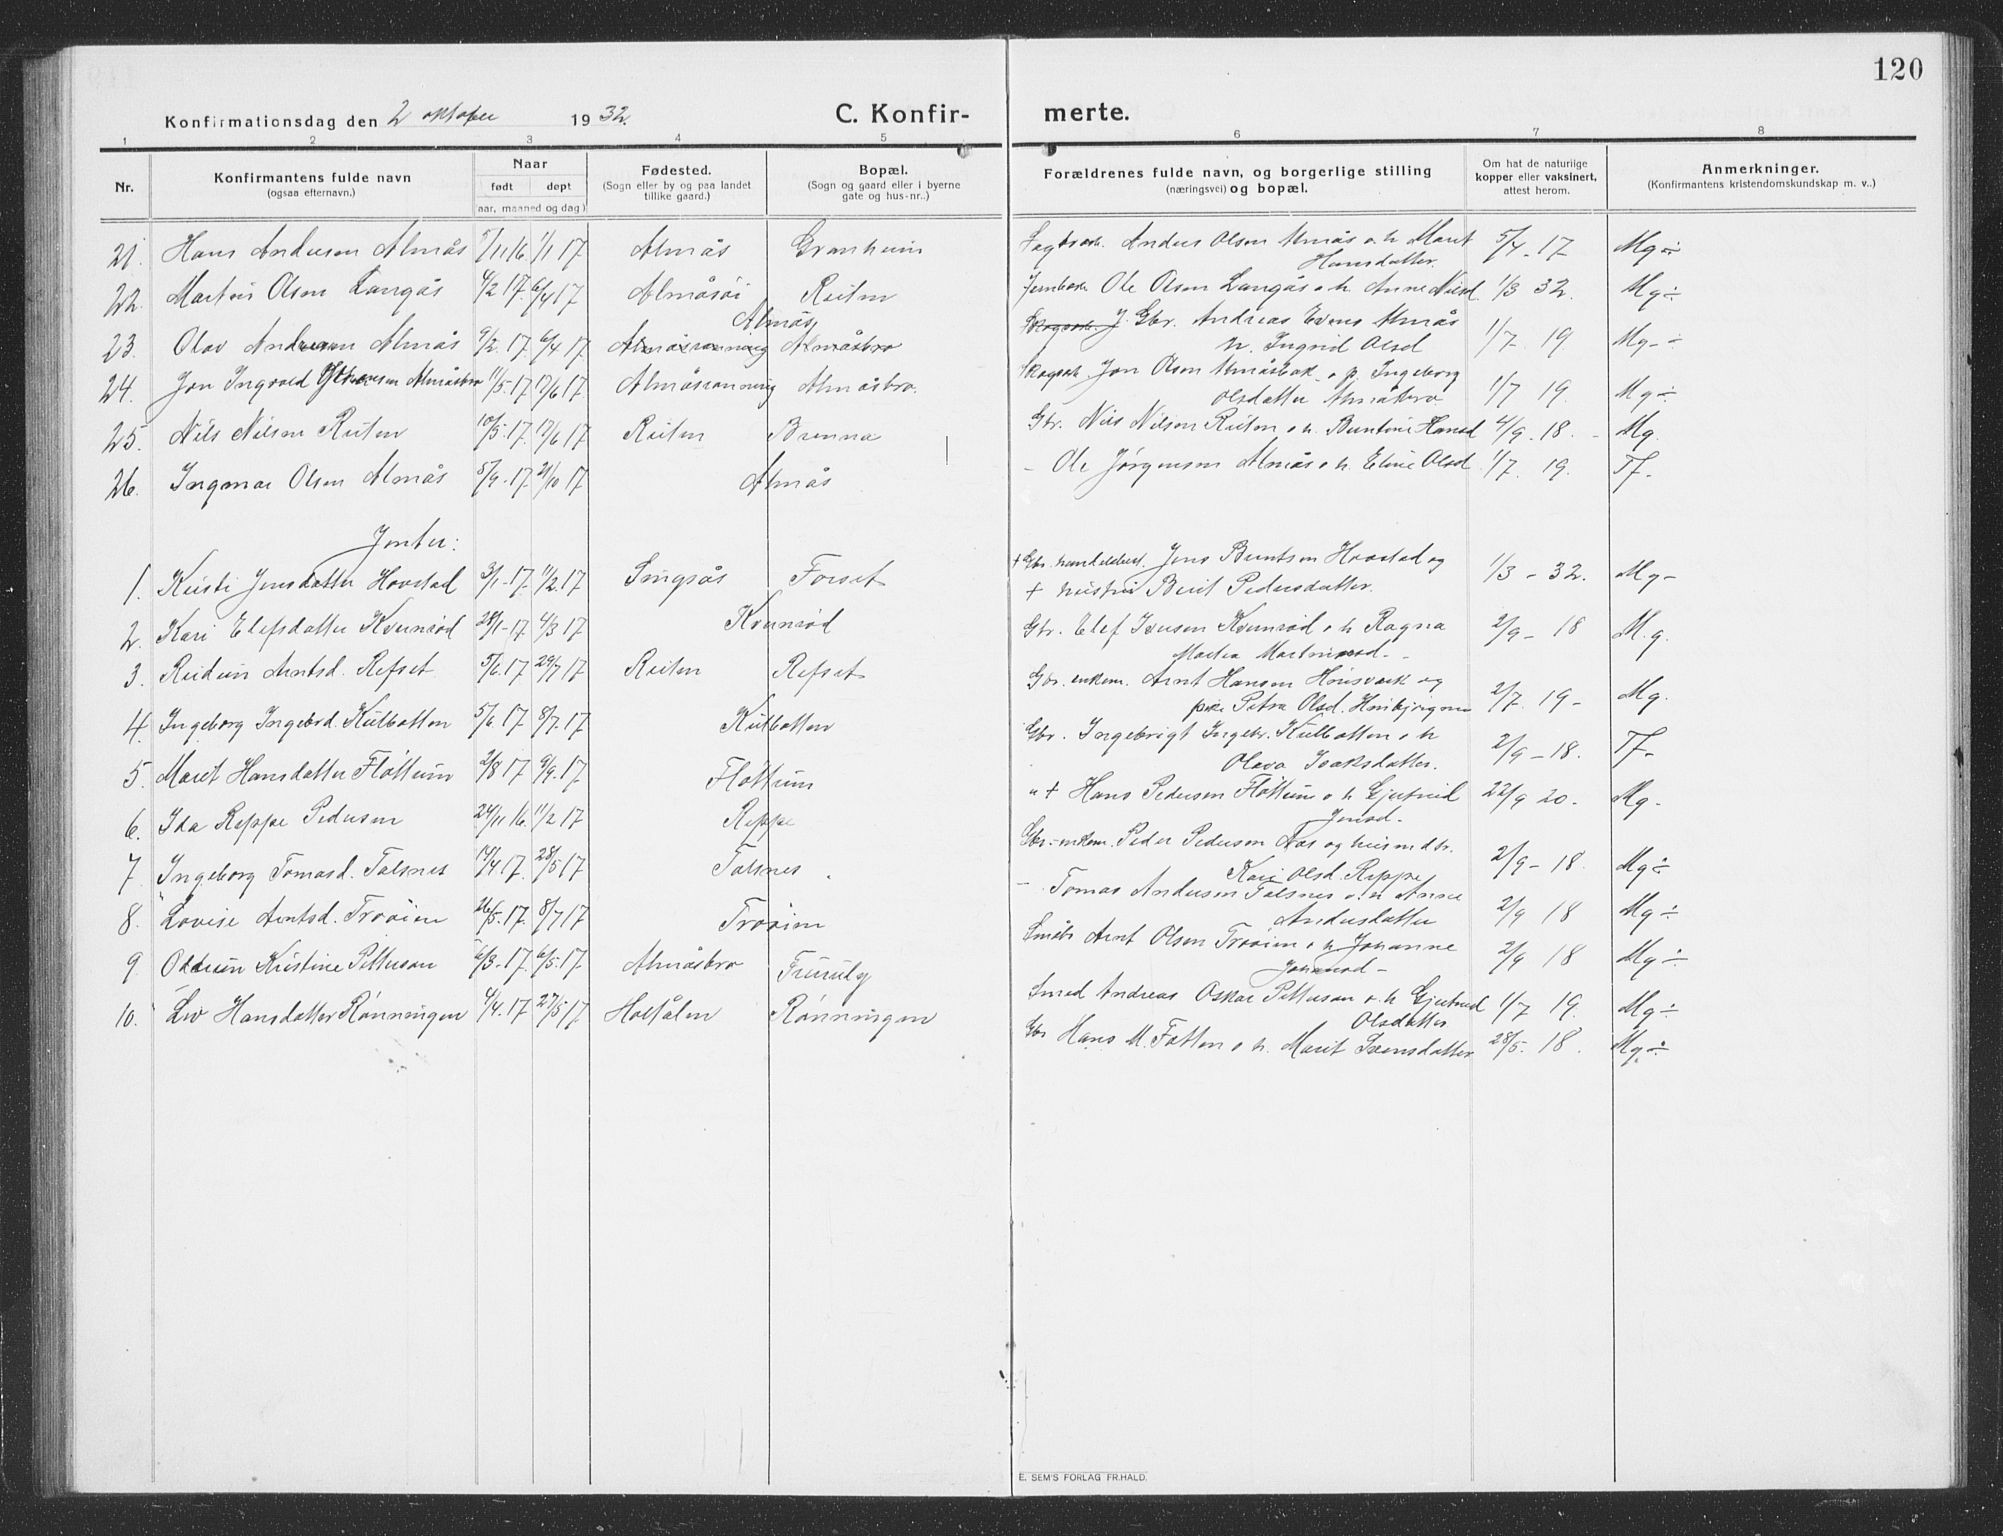 120
Konfirmationsdag den 2 oktober 1932.
C. Konfirmerte.
1 2 3 4 5 6 7 8
Nr.
Konfirmantens fulde navn
(ogsaa efternavn.)
Naar
født døpt
(aar, maaned og dag)
Fødested.
(Sogn eller by og paa landet
tillike gaard.)
Bopæl.
(Sogn og gaard eller i byerne
gate og hus-nr..)
Forældrenes fulde navn, og borgerlige stilling
(næringsvei) og bopæl.
Om hat de naturlige
kopper eller vaksinert,
attest herom.
Anmerkninger.
(Konfirmantens kristendomskundskap m. v..)
21. Hans Andersen Almås /11 16 1/1 17 Almås Granheim Anders Olsen Almås o. h. Marit 5/4 - 17 Mg ÷
Hansdatter.
22. Olsen Langås 4/2 17. 6/4 17 Almåsøi Reiten Ole Olsen Langås o. h. Anne Nilsd. 1/3 32. Mg ÷
Almås
23. Olav Andersen Almås 9/2. 17. 6/4 17 Almåsrønning Almåsbro Gbr. Andreas Evens Almås 1/7. 19. Mg - ÷
h. Ingrid Olsd
24. Jon Ingvald Almåsbro 11/5. 17. 17/6 17. Almåsrønning Almåsbro. Jon Olsen Almåsbak o. p. Ingeborg 1/7 19. Mg ÷
Olsdatter Almåsbro
25. Nils Nilsen Reiten 10/5. 17. 17/6 17. Reiten Brenna Gbr. Nils Nilsen Reiten o. h. Berntine Hansd 4/9. 18. - Mg.
26. Ingmar Olsen Almås 5/9. 17. 21/10 17 Almås - Ole Jørgensen Almås o. h. Eline Olsd 1/7. 19. Tf.
Jenter:
1. Kirsti Jensdatter Hovstad 3/1 - 17. 11/2. 17 Singsås Forset + Gbr. Jens Berntsen Hovstad og 1/3 - 32. Mg -
+ hustru Berit Pedersdatter.
2. Kari Elefsdatter Kvernrød 28/1 - 17. 4/3 17 Kvernrød Gbr. Elef Iversen Kvernrød o. h. Ragna 2/9 - 18 M. g.
Martea
3. Reidun Arntsd. Refset 5/6. 17. 29/7 17. Reiten Refset Gbr. enkem. Arnt Hansen og 2/7. 19 - Mg.
Petra Olsd.
4. Ingeborg Ingebrd. Kulbotten 5/6 17. 8/7. 17 Kulbotten Gbr. Ingebrigt Ingebr. Kulbotten o. h 2/9 - 18. Tf -
Olava Isaksdatter.
5. Marit Hansdatter Fløttum 2/8 17. 9/9. 17. Fløttum " + Hans Pedersen Fløttum o. h Gjertrud 22/9 20. Mg.
Jensd.
6. Ida Reppe Pedersen 24/11 16. 11/2 17 Reppe Gbr. - enkem. Peder Pedersen Aas og 2/9 - 18. Mg ÷
Kari Olsd. Reppe
7. Ingeborg Tomasd. Talsnes 14/4 17. 28/5 17 Talsnes - Tomas Andersen Talsnes o. h Anne 2/9 18 Mg ÷
Andersdatter
8. Lovise Arntsd. Trøöien 26/5. 17. 8/7 17 Trøöien Småbr Arnt Olsen Trøöien o. h Johanne 2/9 18 Mg ÷
9. Oddrun Kristine Pettersen 6/3 - 17. 6/5. 17. Almåsbro Furuly Smed Andreas Oskar Pettersen o. h Gjertrud 1/7 19. Mg ÷
Olsdatter
10. Liv Hansdatter Rønningen 4/4. 17. 27/5 17 Holtålen Rønningen Gbr Hans M. Fotten o. h. Marit Svensdatter 28/5. 18. Mg ÷
E. SEM'S FORLAG FR.HALD.